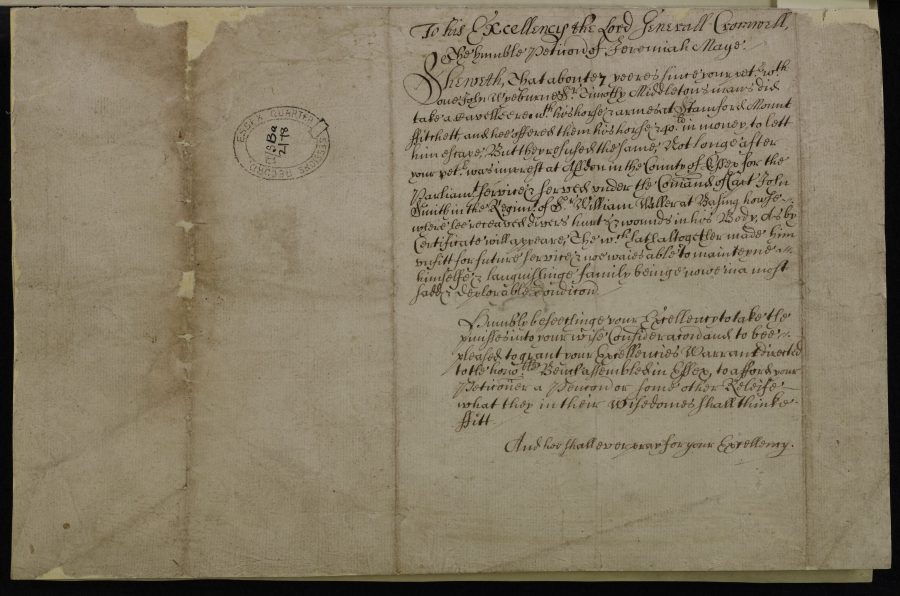 To his Excellencye the Lord Generall Cromwell,
The humble Peticon of Jeremiah Maye.
Sheweth, That aboute 7 yeeres since your pet.r wth
one John Wyeburne Sr. Timothy Middletons man did
take a Cavelleere wth. his horse & armes at Stansted Mount
ffitchett, and hee offered them his horse & 40li. in money, to lett
him escape, But they refused the same, Not longe after
your pet.r was imprest at in the County of Essex for the
Parliamts. service & served under the Comand of Capt John
Smith in the Regimt. of Sr. William Waller at Basing howse
where hee receaved divers hurts & wounds in his Body, As by
Certificate will appeare, The wch. hath altogether made him
unfitt for future service & noe waies able to mainteyne
himselfe & languishinge family beinge nowe in a most
sadd & deplorable Condicon.
Humbly beseechinge your Excellency to take the
pmisses into your wise Consideracon and to bee
pleased to grant your Excellencies Warrant directed
to the honoble. Bench assembled in Essex, to afford your
Peticoner a Pencon or some other Releife
what they in their Wisedomes shall thinke
ffitt.
And hee shall ever pray for your Excellency.
ESSEX QUARTER SESSIONS RECORDS
Q/SBa
2/78